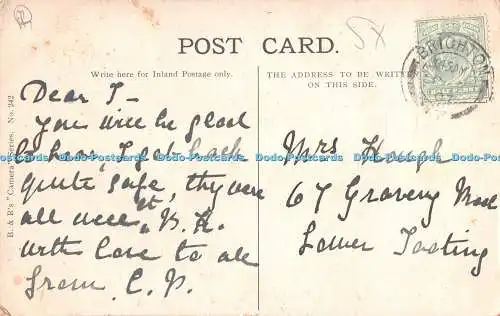 POST CARD.
5x
BRIGHTON
Write here for Inland Postage only.
THE ADDRESS TO BE WRITTEN
ON THIS SIDE.
B. & R's "Camera" Series. No. 242
Dear T-
You will be glad
to hear, I got back
quite safe, they were
all well at B. H.
with love to all
from C. P.
Mrs Hough
67 Graveny Road
Lower Tooting
Dodo-Postcards Dodo-Postcards Dodo-Postcards Dodo-Postcards Dodo-Postcards